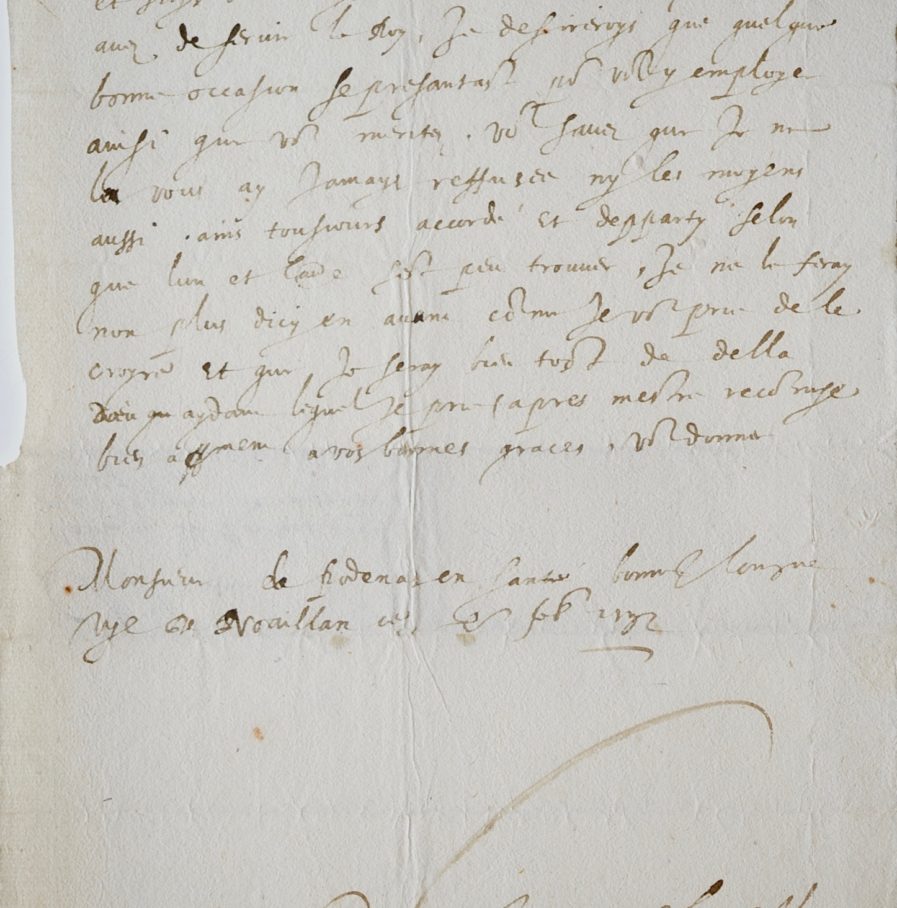 avez de servir le Roy, Je desireroys que quelque
bonne occasion se presantast po^r vo^s y employe
ainsi que vo^s merites. vo^s savez que Je ne
la vous ay Jamays reffusee ny les moyens
aussi. ains tousiours accordé Et depparty selon
que lun et l'au^e s'est peu trouver, Je ne le feray
non plus dicy en avant cōme Je vo^s prie de le
croyre Et que Je seray bien tost de della
Dieu aydant lequel Je prie apres mestre recōmāde
bien a vos bonnes graces, vo^s donner
Monsieur de en santé bonne longue
vye De Noaillan ce feb^r